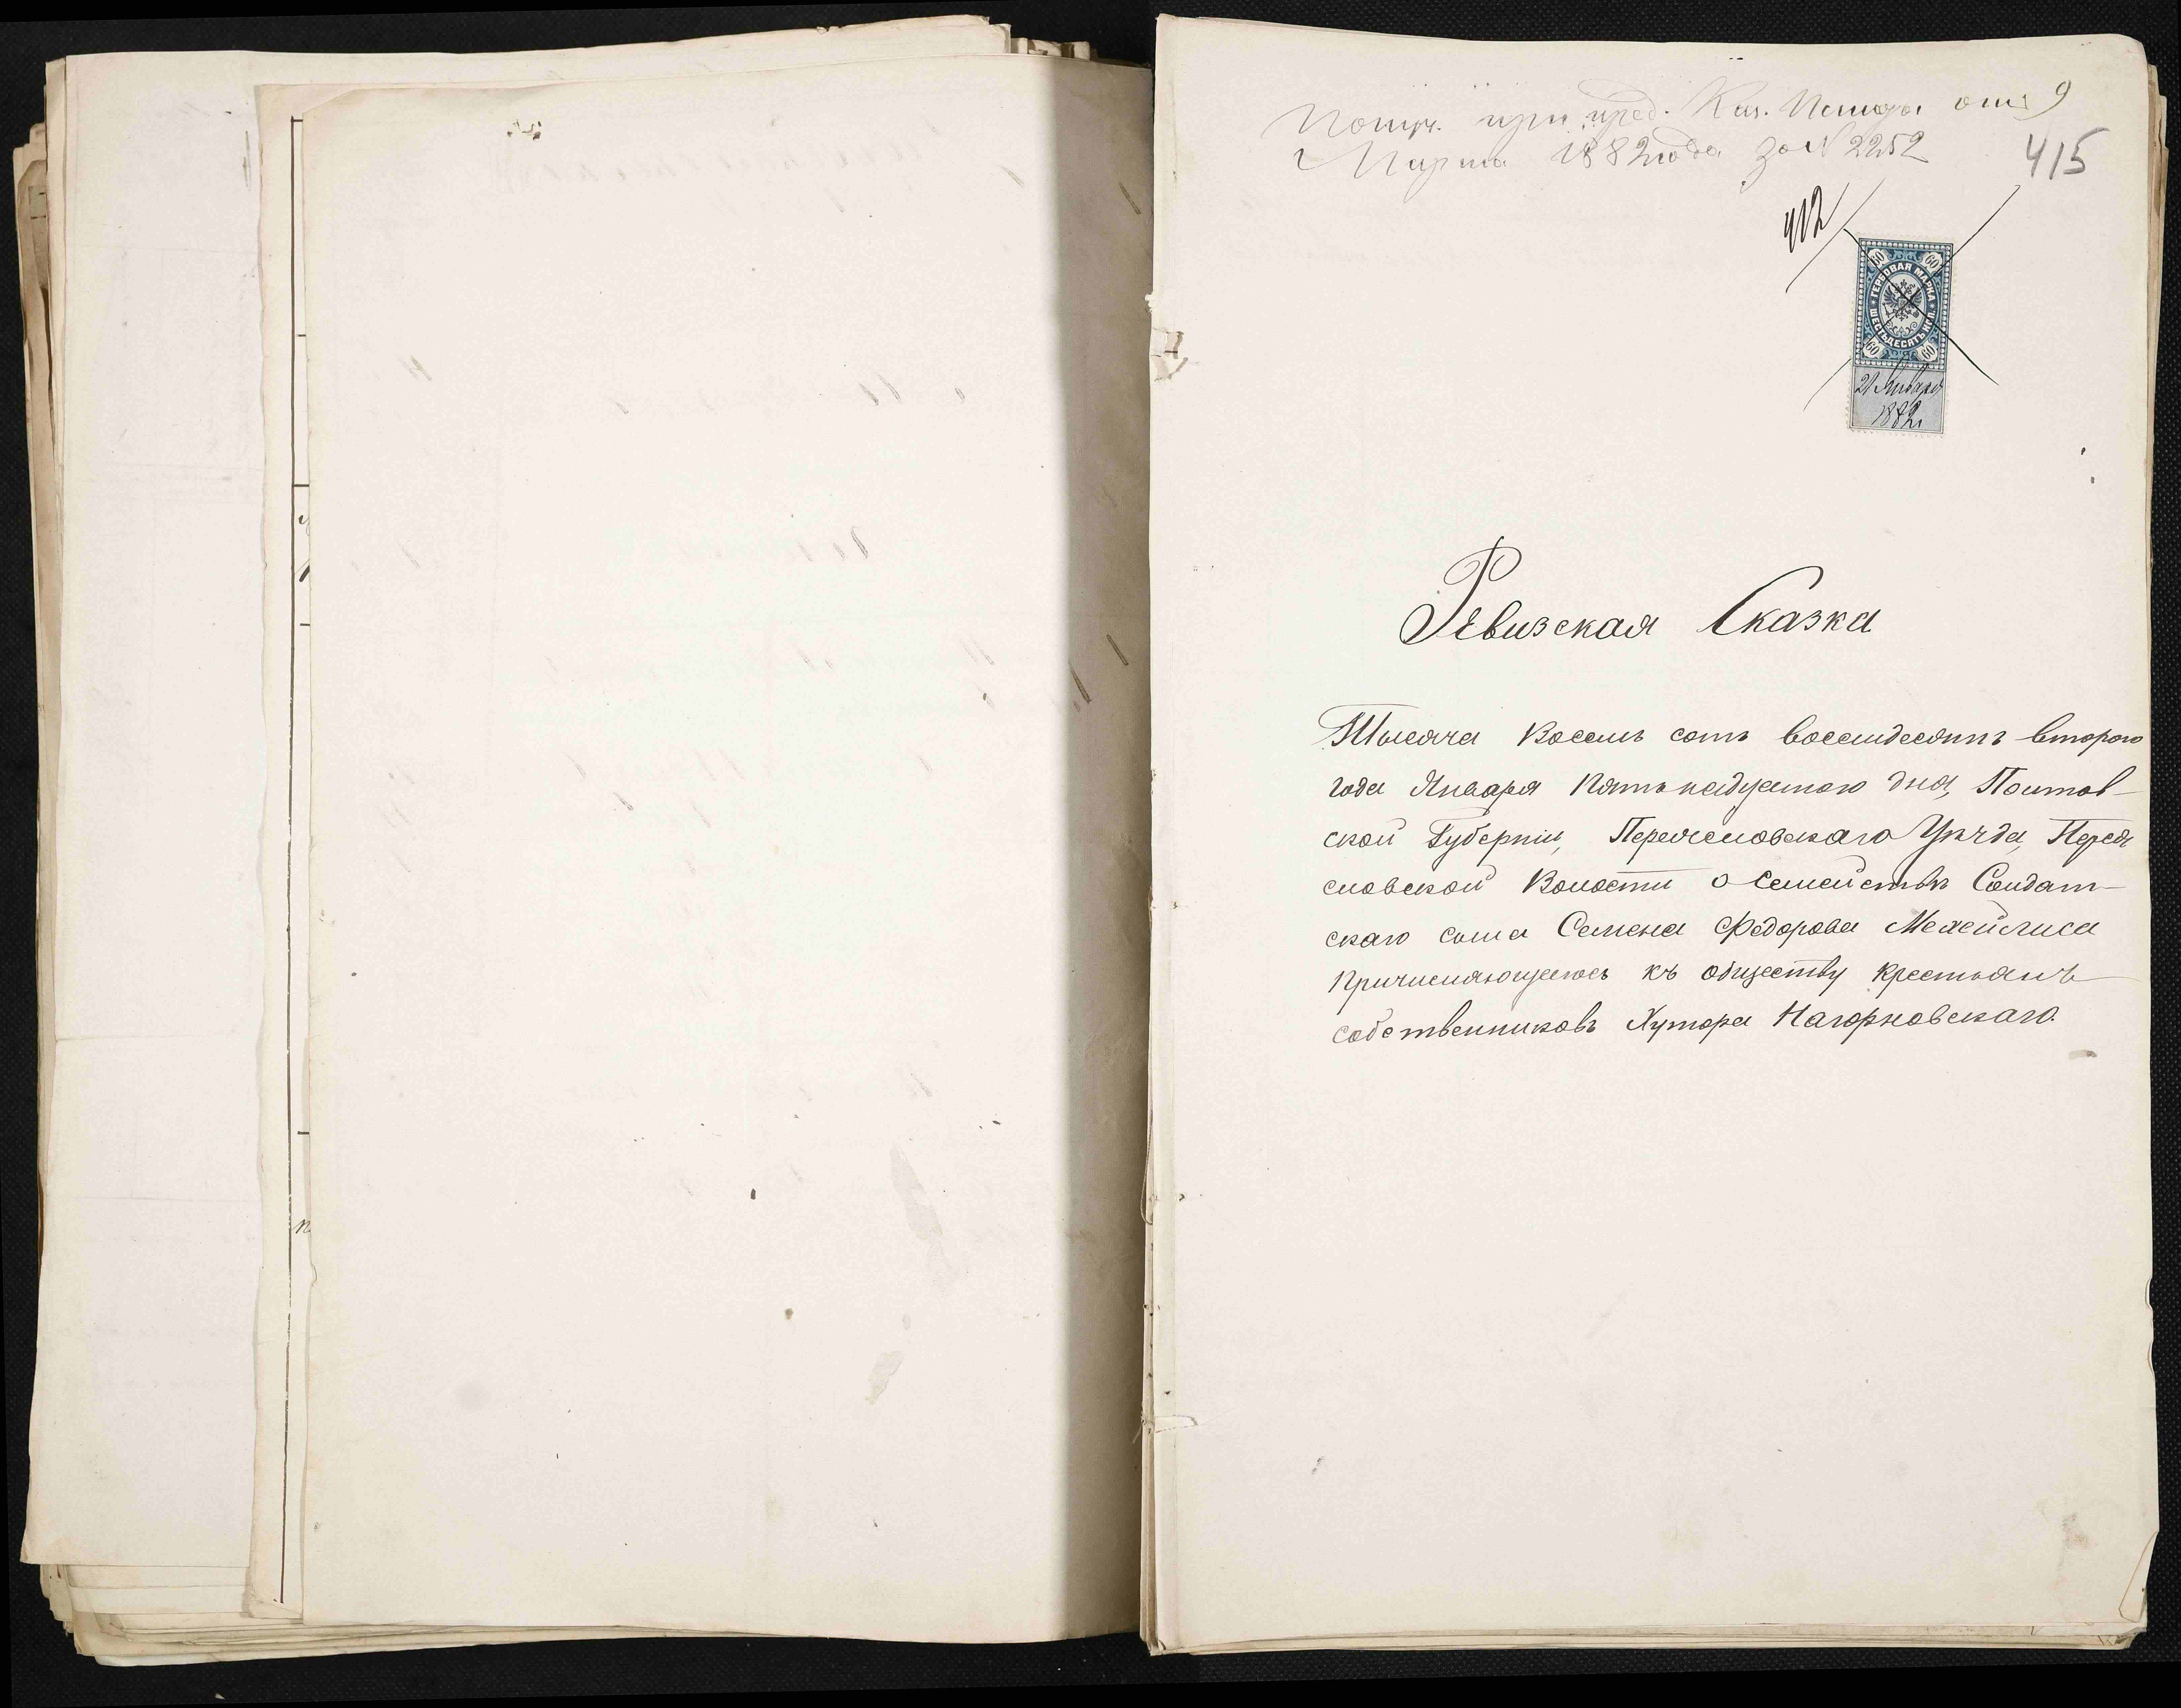 Получ. при пред. Каз. Палаты отъ 9
Марта 1882 года за N 2252
415
412
60 60
ГЕРБОВАЯ МАРКА
ШЕСТЬДЕСЯТЪ КОП.
60 60
21 Января
1882 г.
Ревизская Сказка
Тысяча Восемь сотъ восемдесятъ второго
года Января Пятьнадцатого дня, Полтав-
ской Губерніи, Переяславскаго Уѣзда, Перея
славской Волости о Семействѣ Солдат-
скаго сына Семена Федорова Мехейлиса
Причисляющегося къ обществу крестьянъ
собственниковъ Хутора Нагорновскаго.